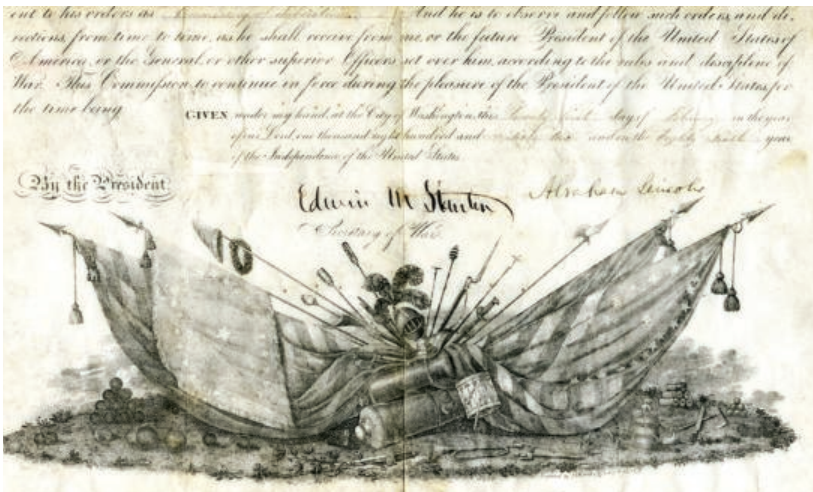 ent to his orders as Commissary of Subsistence And he is to observe and follow such orders, and di-
rections, from time to time, as he shall receive from me, or the future President of the United States of
America, or the General, or other superior Officers set over him, according to the rules and discipline of
War. This Commission to continue in force during the pleasure of the President of the United States, for
the time being
GIVEN under my hand, at the City of Washington, this Twenty first day of February in the year
of our Lord, one thousand eight hundred and sixty two and in the Eighty sixth year
of the Independence of the United States.
By the President
Abraham Lincoln
Edwin M Stanton
Secretary of War.